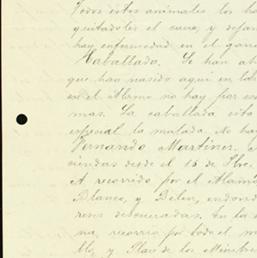 Todos estos animales los ha
quitadoles el cuero, y dejan
hay enfermedad en el gana
Caballada. Se han ah
que han nasido aqui en
en el Alamo no hay por es
mas. La caballada esta
espesial la malada. No ha
Fernando Martinez.
ciendas desde el 15 de
A recorrido por el Alam
Blanco, y Belen,
reses descueradas. En la
na, recorrio por todo el m
y Plan de los